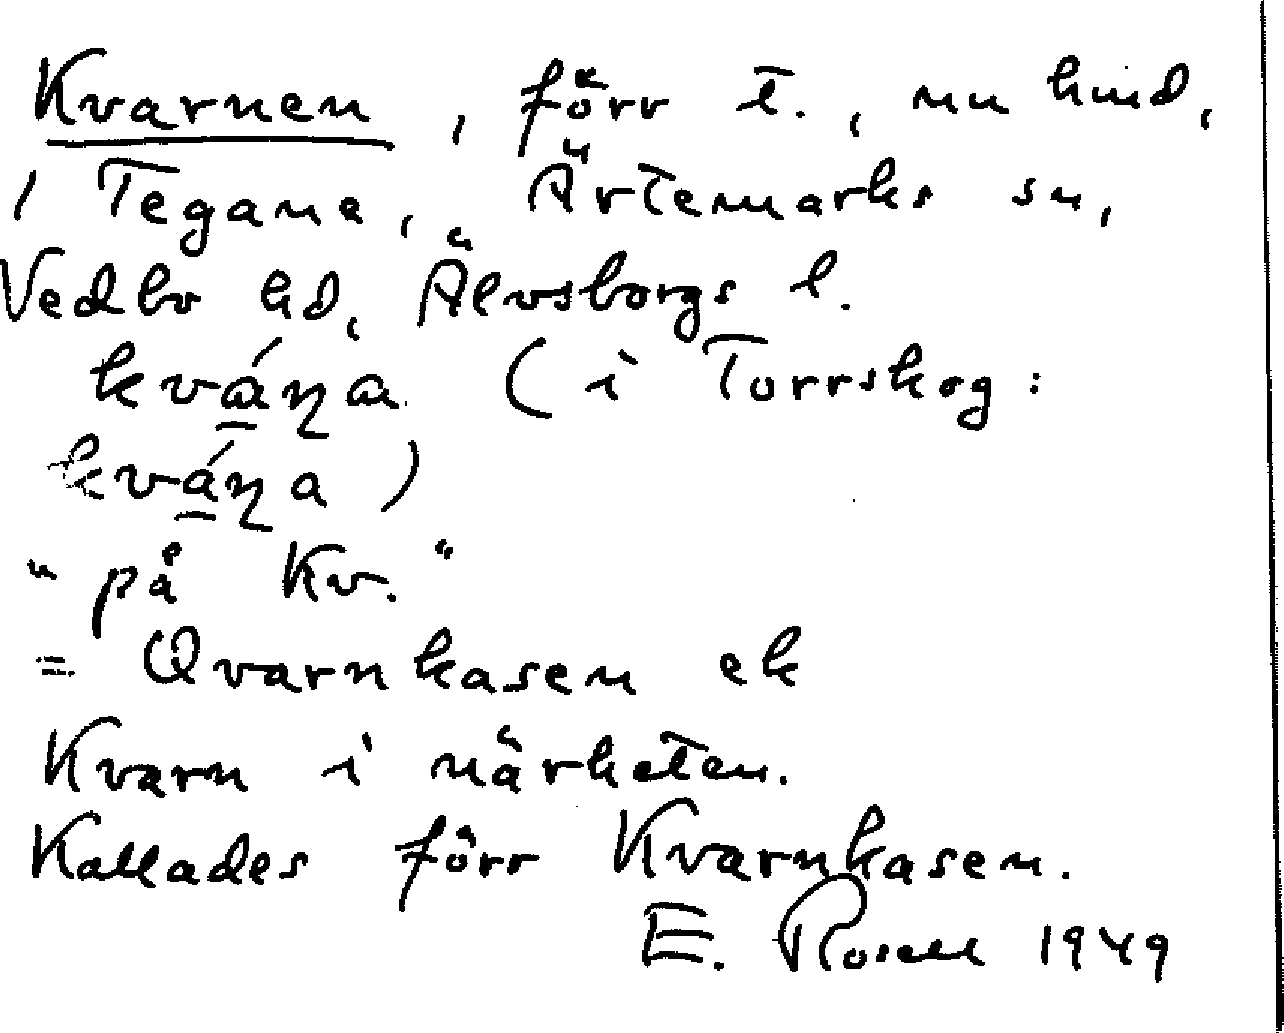 Kvarnen, förr t., nu hmd,
i Tegane, Ärtemarks sn,
Vedbo hd, Älvsborgs l.
kvá̱ꞃa (i Torrskog:
kvá̱ꞃa)
"på Kv."
= Qvarnkasen ek
Kvarn i närheten.
Kallades förr Kvarnkasen.
E. Rosell 1949